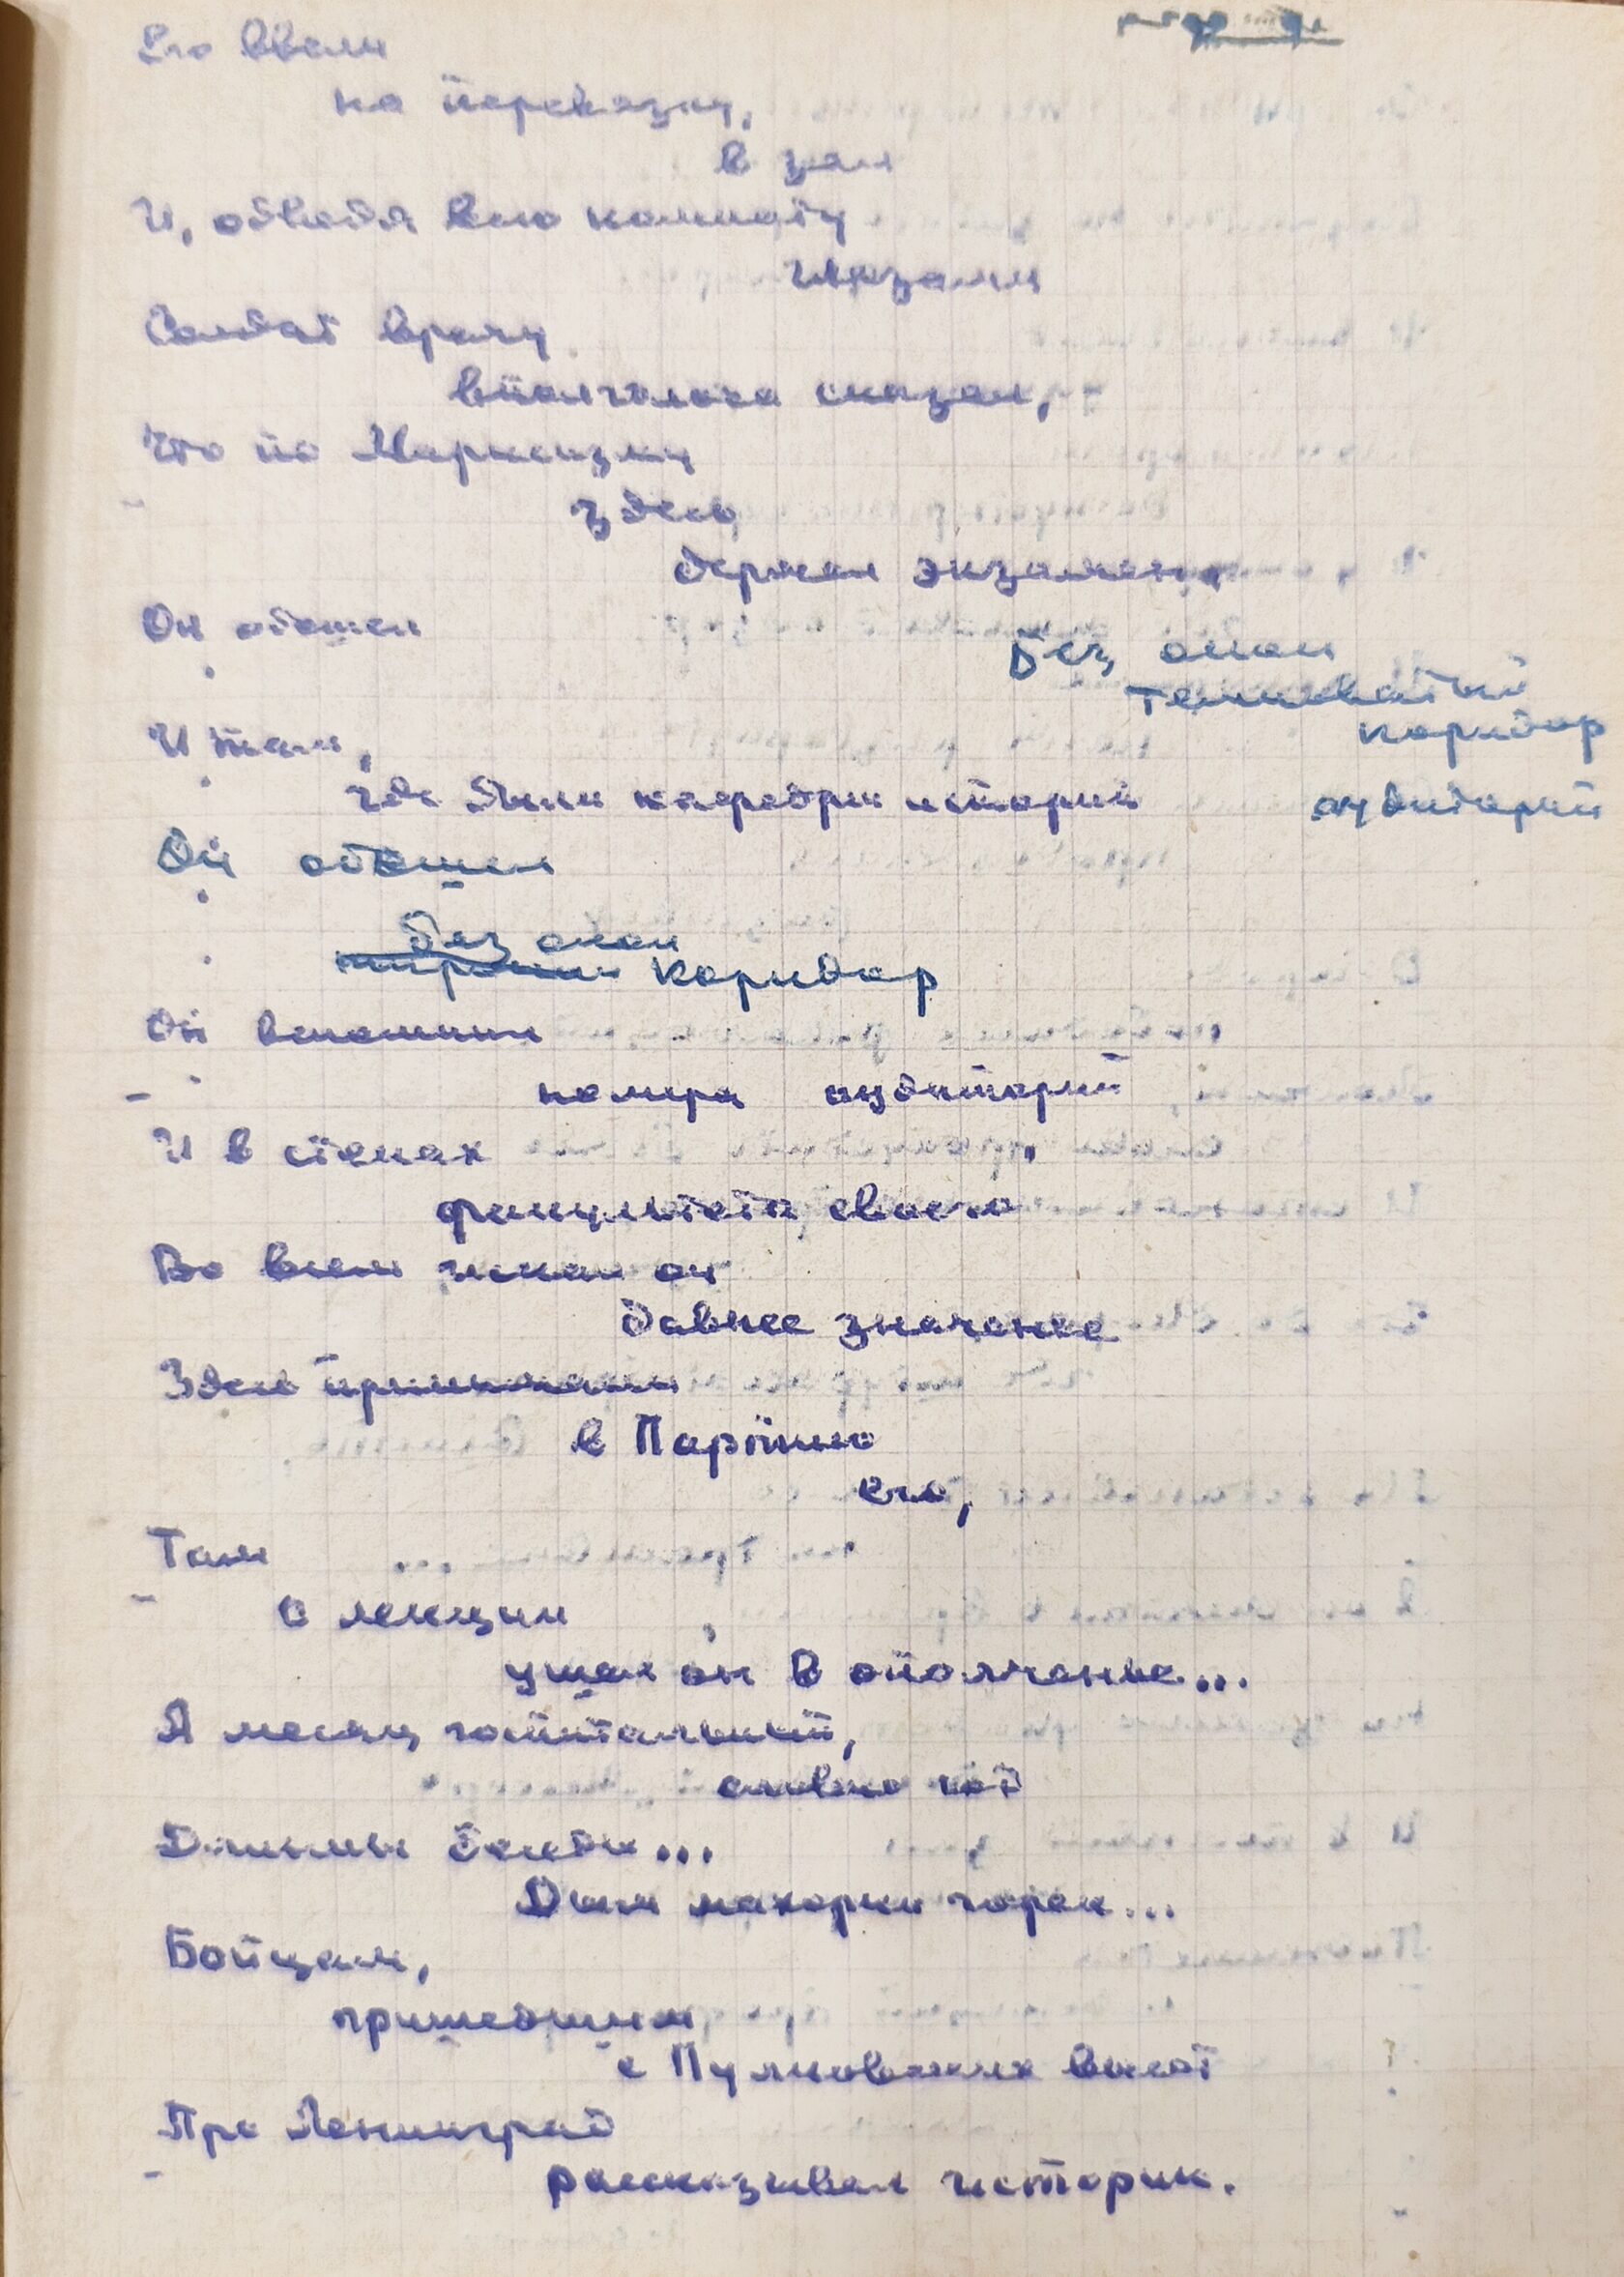 Его ввели
на перевязку,
в зал
И, обведя всю комнату
глазами
Солдат врачу
вполголоса сказал,
Что по Марксизму
здесь
держал экзамены
Он обошел
без окон
коридор
И там,
где были кафедры истории
аудиторий
Он обошел
без окон
коридор
Он вспомнил
номера аудиторий
И в стенах
факультета своего
Во всем искал он
давнее значенье
Здесь принимали
в Партию
его,
Там
с лекции
ушел он в ополченье...
А месяц госпитальный,
словно год
Длинны беседы...
Дым махорки горек...
Бойцам,
пришедшим
с Пулковских высот
Про Ленинград
рассказывал историк.